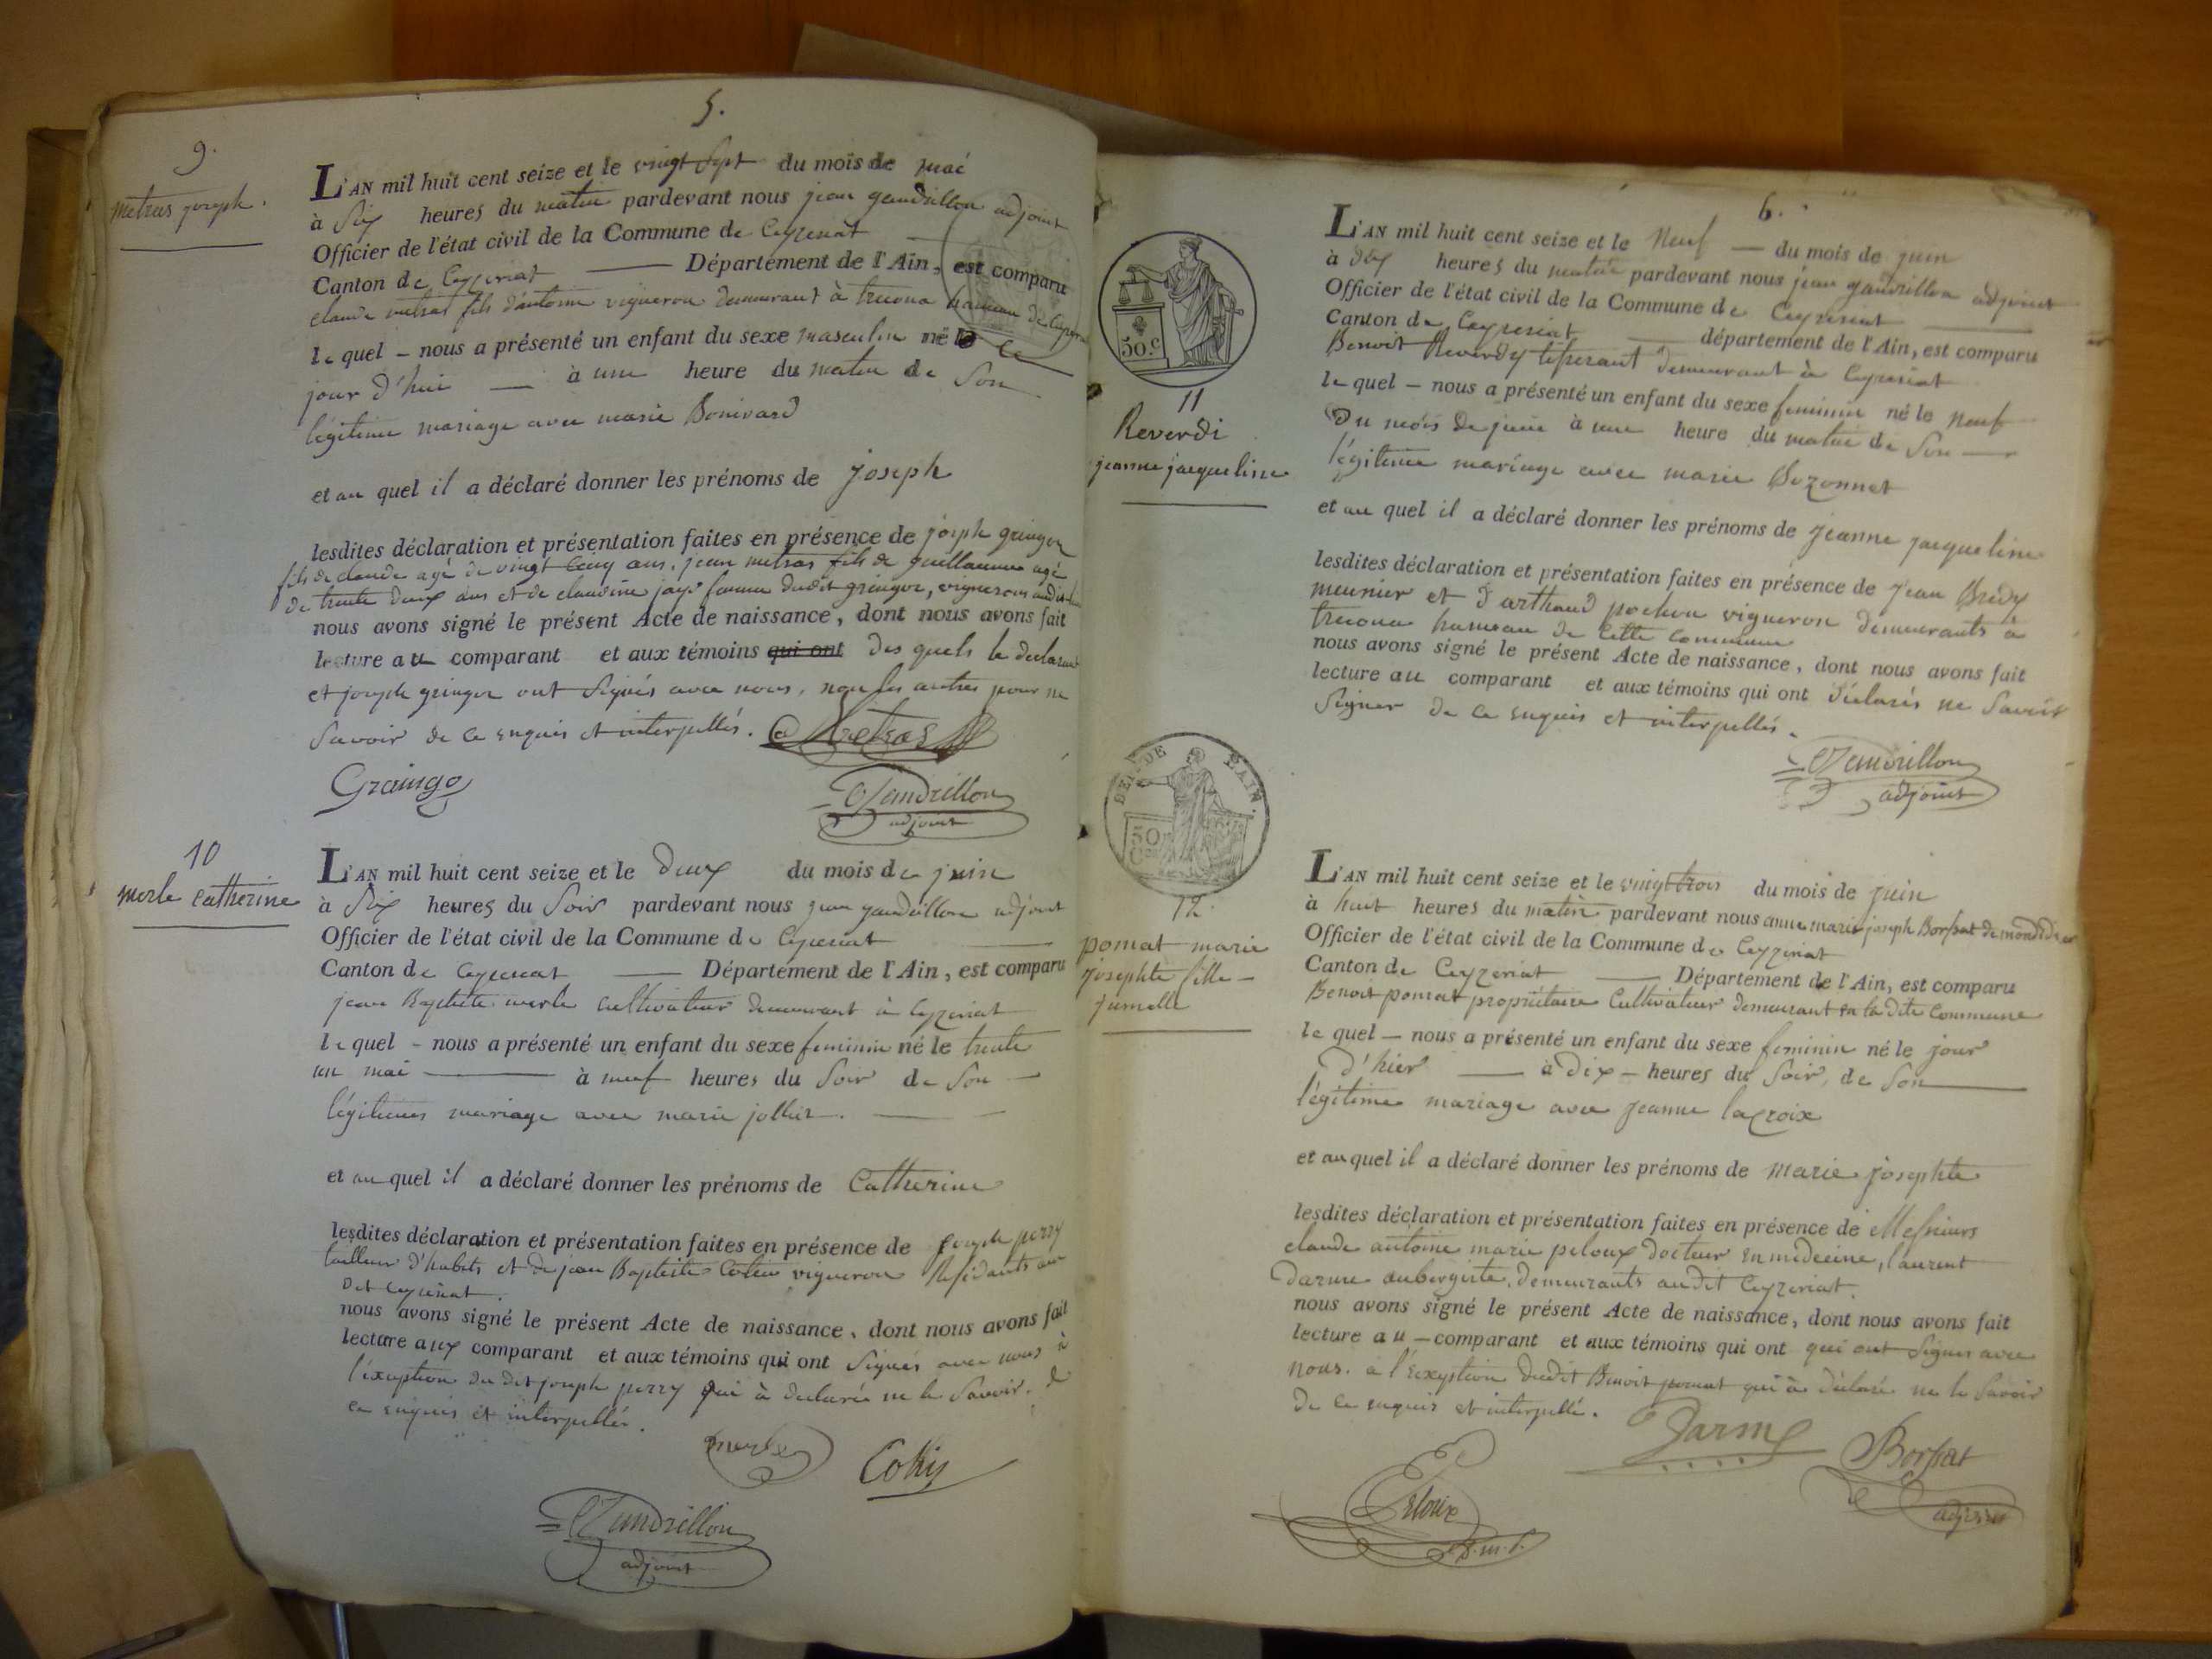 5.
9.
metras joseph.
L'AN mil huit cent seize et le vingt Sept du mois de mai
à Six heures du matin pardevant nous jean gandrillon adjoint
Officier de l'état civil de la Commune de Ceyzeriat
Canton de Ceyzeriat Département de l'Ain, est comparu
claude metras fils d'antoine vigneron demeurant à trecona hameau de Ceyzeriat
lequel - nous a présenté un enfant du sexe masculin né le ce
jour d'hui à une heure du matin de Son
légitime mariage avec marie Bonivard
et au quel il a déclaré donner les prénoms de joseph
lesdites déclaration et présentation faites en présence de joseph graingor
fils de claude agé de vingt Cinq ans, jean metras fils de guillaume agé
de trente deux ans et de claudine jays femme dudit graingor, vignerons audit
nous avons signé le présent Acte de naissance, dont nous avons fait
lecture au comparant et aux témoins qui ont des quels le declarant
et joseph graingor ont Signés avec nous, non les autres pour ne
Savoir de ce enquis et interpellés. Metras
Graingo
Gandrillon
adjoint
10
merle Catherine
L'AN mil huit cent seize et le deux du mois de juin
à Six heures du Soir pardevant nous jean gandrillon adjoint
Officier de l'état civil de la Commune de Ceyzeriat
Canton de Ceyzeriat Département de l'Ain, est comparu
jean Baptiste merle cultivateur demeurant à Ceyzeriat
lequel - nous a présenté un enfant du sexe feminin né le trente
un mai à neuf heures du Soir de Son
légitime mariage avec marie jollier.
et au quel il a déclaré donner les prénoms de Catherine
lesdites déclaration et présentation faites en présence de joseph perry
tailleur d'habits et de jean Baptiste vigneron Residants au
dit Ceyzeriat.
nous avons signé le présent Acte de naissance, dont nous avons fait
lecture aux comparant et aux témoins qui ont Signés avec nous à
l'exeption du dit joseph perry qui à declarée ne le Savoir. de
ce enquis et interpellés.
merle
Gandrillon
adjoint
6.
50.c
11
Reverdi
jeanne jacqueline
L'AN mil huit cent seize et le Neuf du mois de juin
à dix heures du matin pardevant nous jean gandrillon adjoint
Officier de l'état civil de la Commune de Ceyzeriat
Canton de Ceyzeriat département de l'Ain, est comparu
Benoit Reverdy tisserant demeurant à Ceyzeriat
lequel - nous a présenté un enfant du sexe feminin né le neuf
du mois de juin à une heure du matin de Son
légitime mariage avec marie Bozonnet
et au quel il a déclaré donner les prénoms de jeanne jacqueline
lesdites déclaration et présentation faites en présence de jean Bredy
meunier et d'arthaud pochon vigneron demeurants à
trecona hameau de Cette Commune
nous avons signé le présent Acte de naissance, dont nous avons fait
lecture au comparant et aux témoins qui ont déclarés ne Savoir
Signer de ce enquis et interpellés.
Gandrillon
adjoint
DEP. DE L'AIN.
50
12.
pomat marie
josephte fille
jumelle
L'AN mil huit cent seize et le vingt trois du mois de juin
à huit heures du matin pardevant nous anne marie joseph Borssat de mondidier
Officier de l'état civil de la Commune de Ceyzeriat
Canton de Ceyzeriat Département de l'Ain, est comparu
Benoit pomat propriétaire Cultivateur demeurant en la dite Commune
lequel - nous a présenté un enfant du sexe feminin né le jour
d'hier à dix - heures du Soir, de Son
légitime mariage avec jeanne lacroix
et au quel il a déclaré donner les prénoms de marie josephte
lesdites déclaration et présentation faites en présence de Messieurs
claude antoine marie peloux docteur en médecine, laurent
darme aubergiste, demeurants audit Ceyzeriat.
nous avons signé le présent Acte de naissance, dont nous avons fait
lecture au - comparant et aux témoins qui ont qui ont Signés avec
nous. a l'exeption dudit Benoit pomat qui à déclaré ne le Savoir
de ce enquis et interpellé.
Darme
Borssat
adjoint
Peloux
d.m.p.